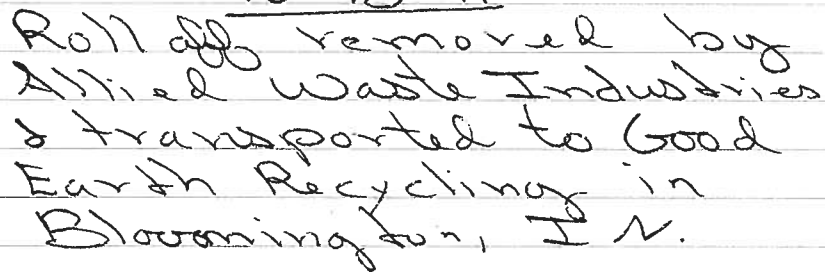 Roll off removed by
Allied Waste Industries
& transported to Good
Earth Recycling in
Bloomington, IN.